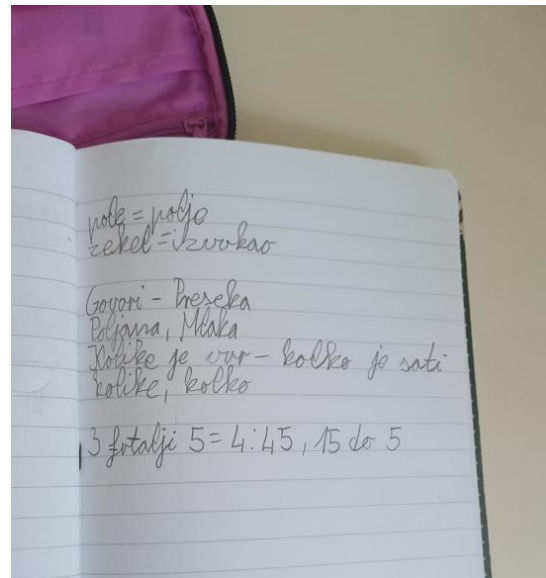 pole = polje
zekel = izvukao
Govori - Preseka
Poljana, Mlaka
Kolike je vur - kolko je sati
kolike, kolko
3 frtalji 5 = 4:45, 15 do 5